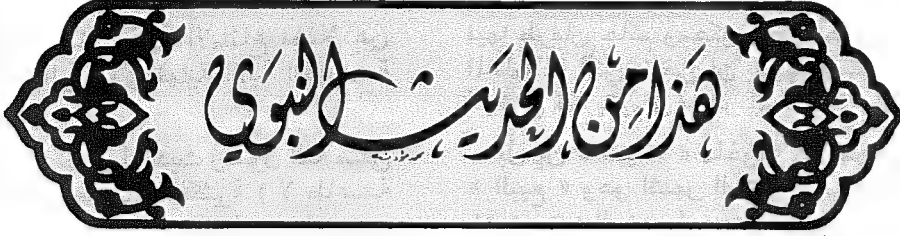 هَذَا مِنَ الحَدِيثِ النبَوي